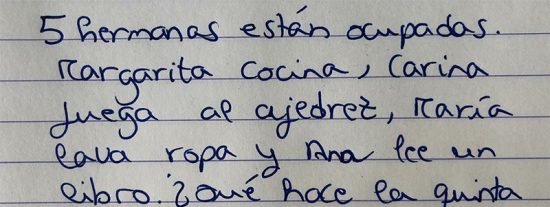 5 hermanas están ocupadas.
Margarita cocina, Carina
juega al ajedrez, María
lava ropa y Ana lee un
libro. ¿Qué hace la quinta